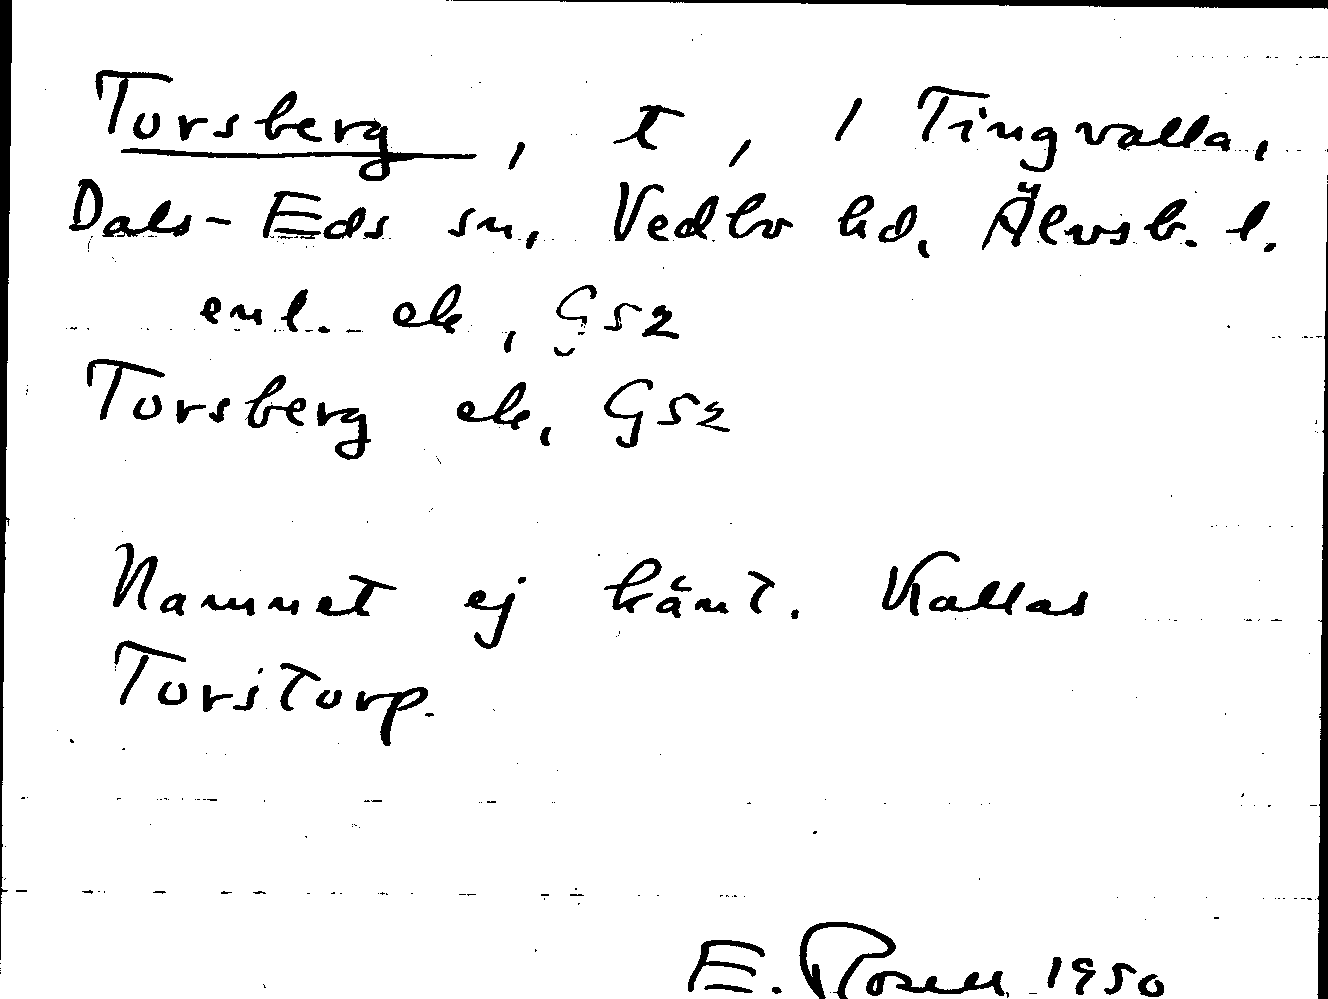 Torsberg, t, / Tingvalla,
Dals-Eds sn, Vedbo hd, Älvsb. l.
enl. ek, G52
Torsberg ek, G52
Namnet ej känt. Kallas
Torstorp.
E. Rosell 1950